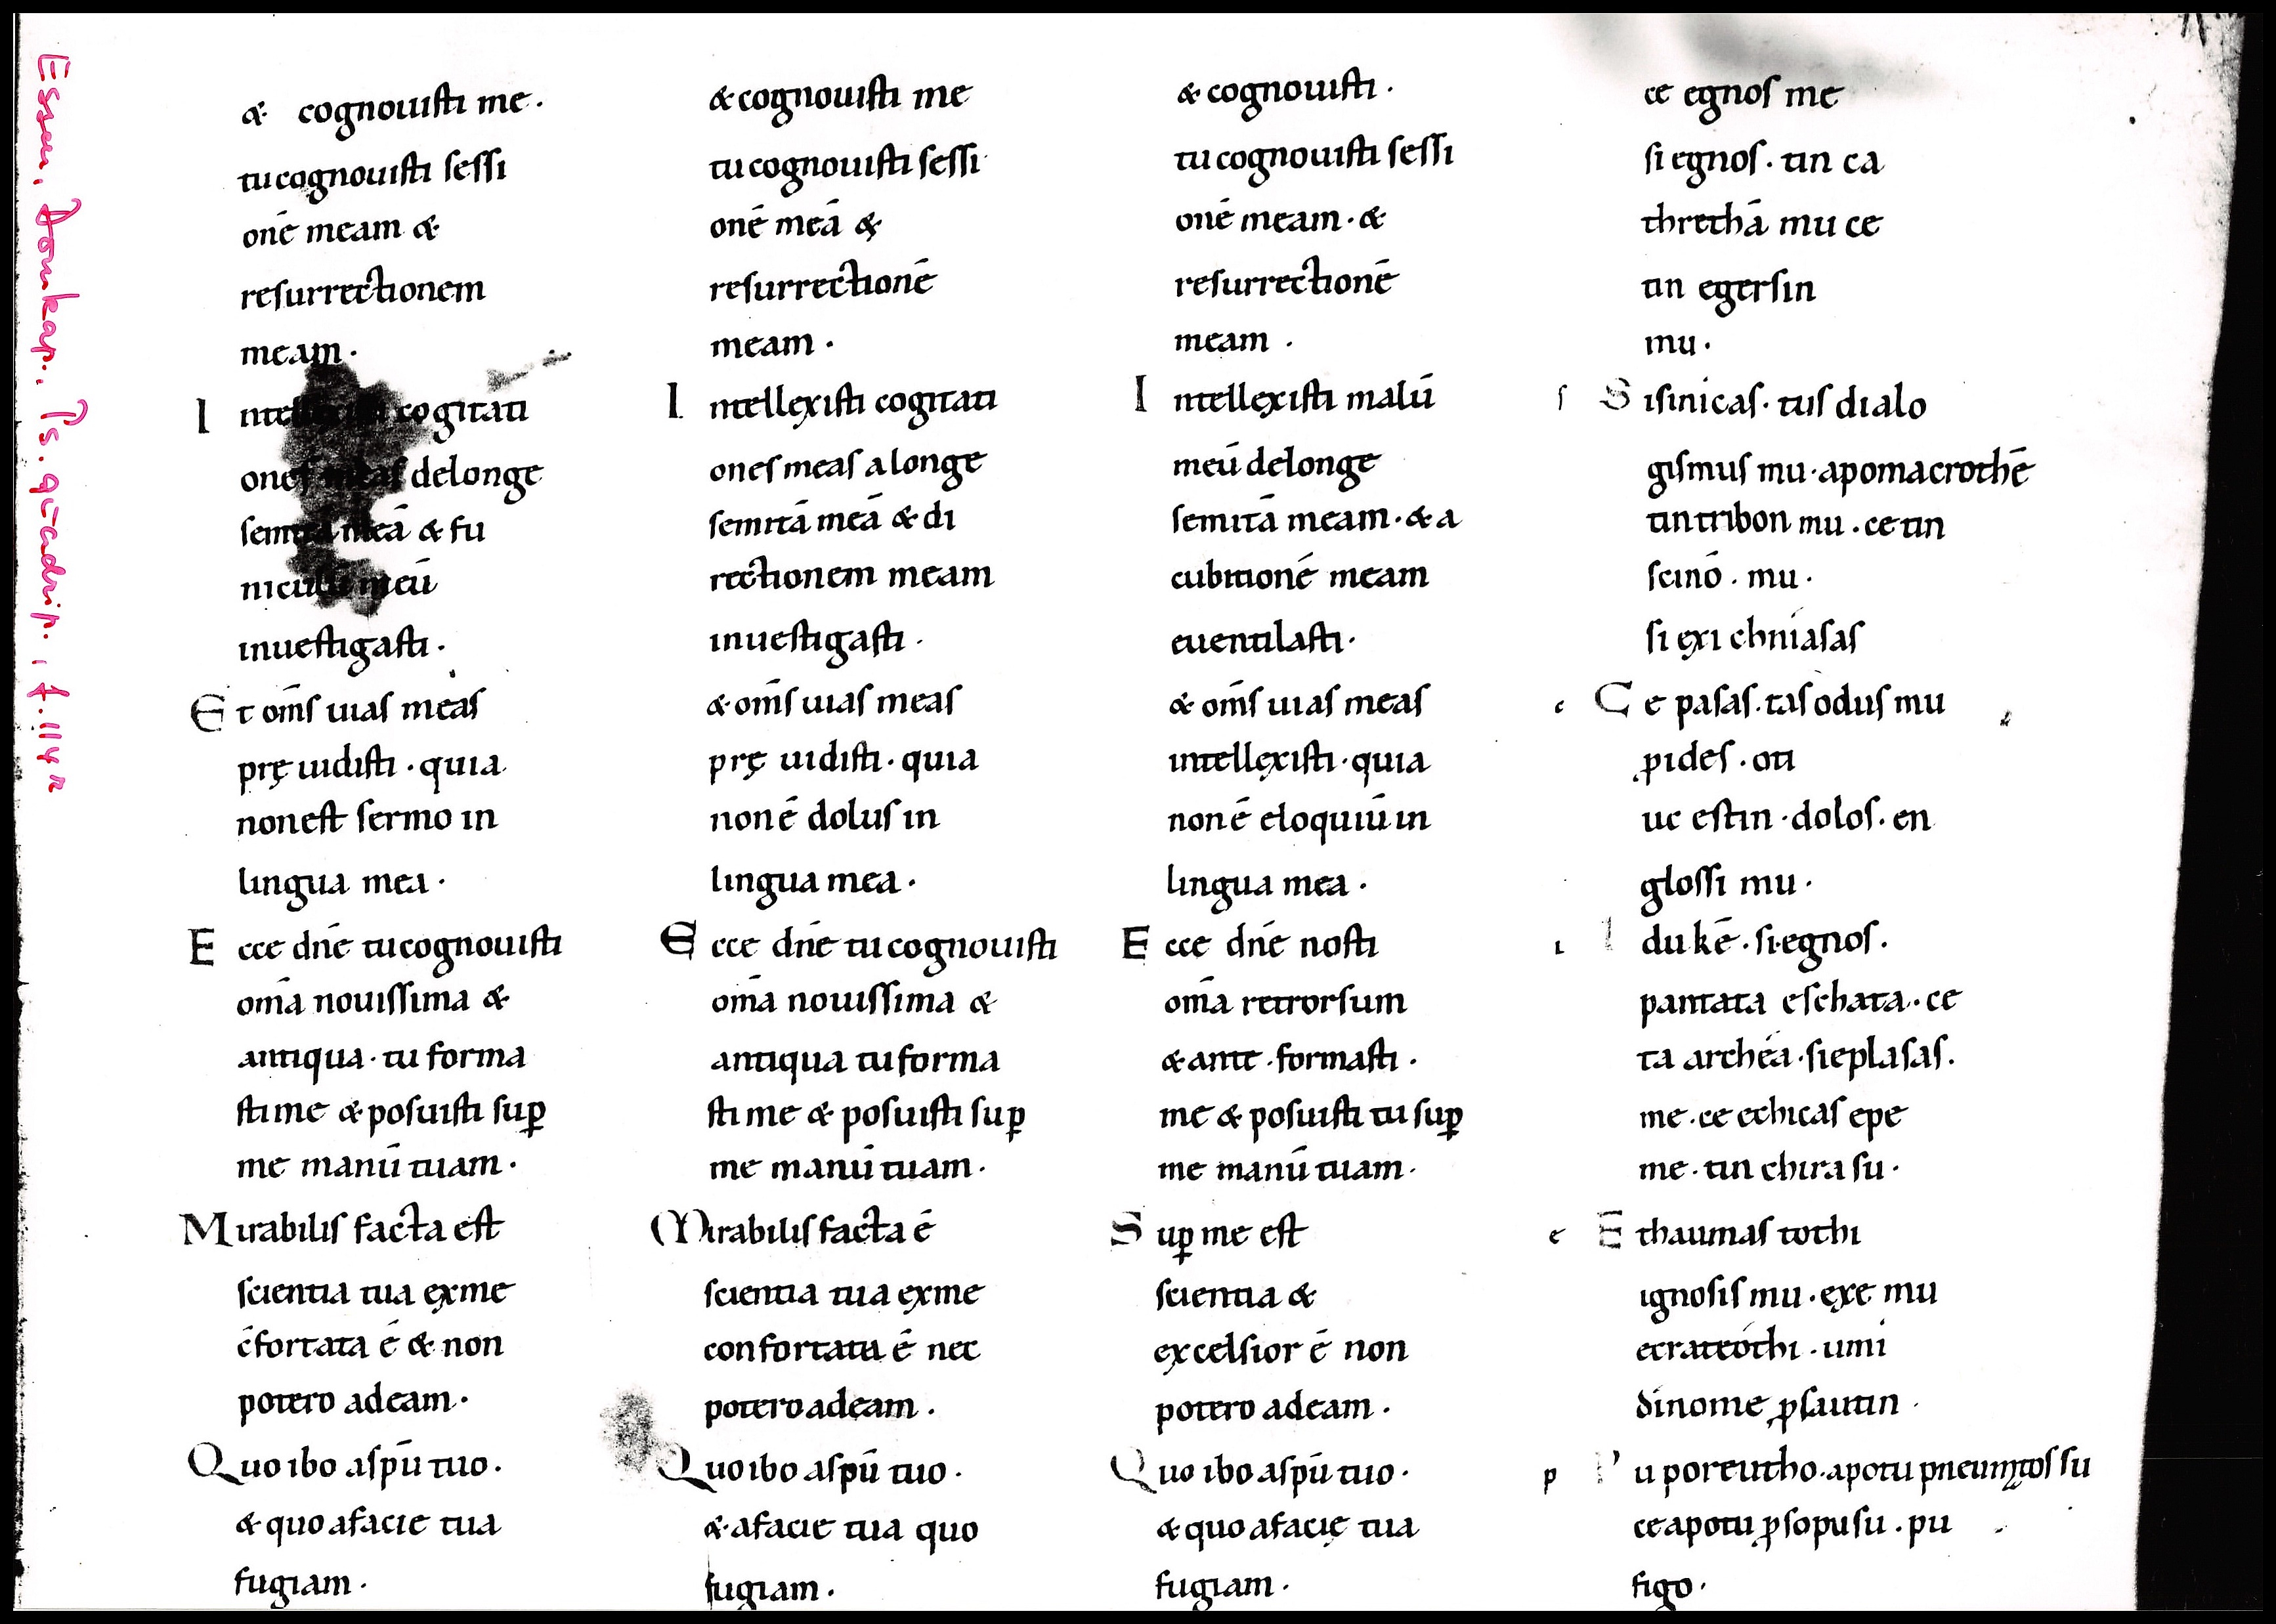 Essen, Domkap., Ps. quadrip., f. 114r
& cognouisti me.
tu cognouisti sessi
onē meam &
resurrectionem
meam.
I cogitati
delonge
meā & fu
meū
inuestigasti.
Et om̄s uias meas
prę uidisti. quia
non est sermo in
lingua mea.
Ecce dn̄e tu cognouisti
om̄a nouissima &
antiqua. tu forma
sti me & posuisti suꝑ
me manū tuam.
Mirabilis facta est
scientia tua exme
c̄fortata ē & non
potero adeam.
Quo ibo aspū tuo.
& quo afacie tua
fugiam.
& cognouisti me
tu cognouisti sessi
onē meā &
resurrectionē
meam.
Intellexisti cogitati
ones meas a longe
semitā meā & di
rectionem meam
inuestigasti.
& om̄s uias meas
prę uidisti. quia
non ē dolus in
lingua mea.
Ecce dn̄e tu cognouisti
om̄a nouissima &
antiqua tu forma
sti me & posuisti suꝑ
me manū tuam.
Mirabilis facta ē
scientia tua exme
confortata ē nec
potero adeam.
Quo ibo aspū tuo.
& afacie tua quo
fugiam.
& cognouisti.
tu cognouisti sessi
onē meam. &
resurrectionē
meam.
Intellexisti malū
meū delonge
semitā meam. & a
cubitionē meam
euentilasti.
& om̄s uias meas
intellexisti. quia
non ē eloquiū in
lingua mea.
Ecce dn̄e nosti
om̄a retrorsum
& ante. formasti.
me & posuisti tu suꝑ
me manū tuam.
Suꝑ me est
scientia &
excelsior ē non
potero adeam.
Quo ibo aspū tuo.
& quo afacię tua
fugiam.
ce egnos me
si egnos. tin ca
threthā mu ce
tin egersin
mu.
s Sisinicas. tus dialo
gismus mu. apomacrothē
tintribon mu. cetin
scinō. mu.
si exi chniasas
c Ce pasas. tas odus mu
ꝓides. oti
uc estin. dolos. en
glossi mu.
i Idu kē. si egnos.
pantata eschata. ce
ta archéa. sieplasas.
me. ce ethicas epe
me. tin chira su.
e Ethaumastothi
ignosis mu. exe mu
ecrateóthi. umi
dinome ꝓsautin
p Pu poreutho. apotu pneumatos su
ceapotu ꝓsopusu. pu
figo.